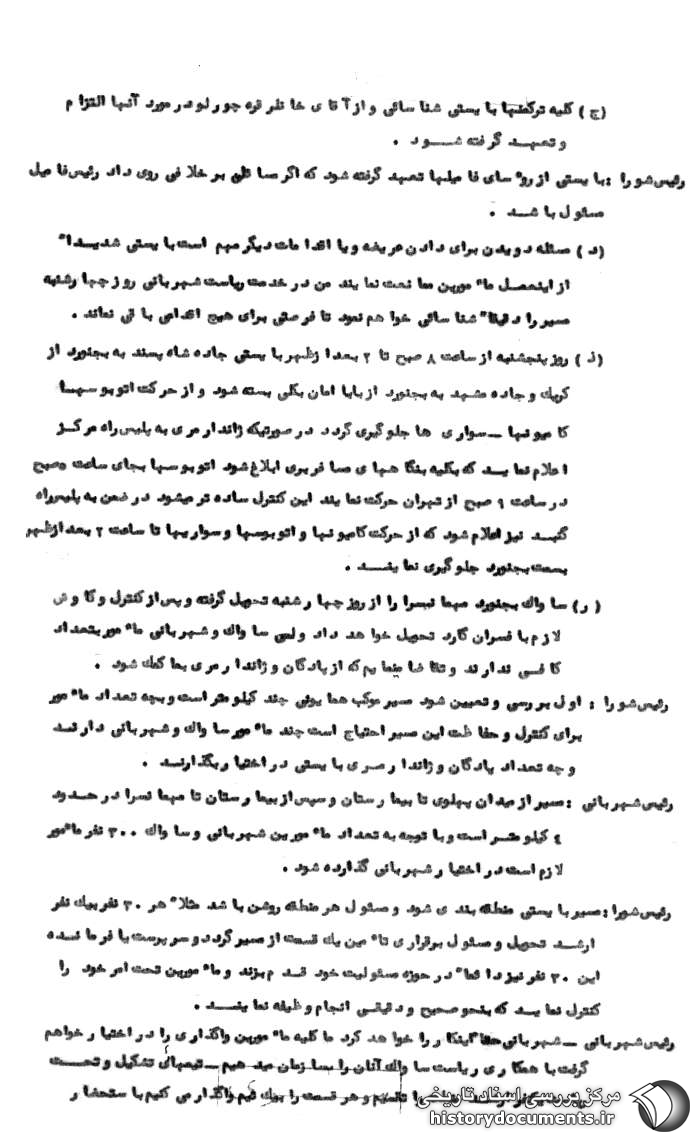 (ج) کلیه ترکمنها بایستی شناسائی و از آقای خانلر قره جورلو در مورد آنها التزام
و تعهد گرفته شود .
رئیس شورا : بایستی از روسای فامیلها تعهد گرفته شود که اگر مسائلی بر خلافی روی داد رئیس فامیل
مسئول باشد .
(د) مسئله دویدن برای دادن عریضه و یا اقدامات دیگر مهم است بایستی شدیداً
از اینعمل مأمورین ممانعت نمایند من در خدمت ریاست شهربانی روز چهارشنبه
مسیر را دقیقاً شناسائی خواهم نمود تا فرصتی برای هیچ اقدامی باقی نماند .
(ذ) روز پنجشنبه از ساعت ۸ صبح تا ۲ بعد از ظهر بایستی جاده شاه پسند به بجنورد از
کهیک و جاده مشهد به بجنورد از بابا امان بکلی بسته شود و از حرکت اتوبوسها
کامیونها ـ سواری ها جلوگیری گردد در صورتیکه ژاندارمری به پلیس راه مرکز
اعلام نماید که بکلیه بنگاههای مسافربری ابلاغ شود اتوبوسها بجای ساعت ۵ صبح
در ساعت ۹ صبح از تهران حرکت نمایند این کنترل ساده تر میشود در ضمن به پلیس راه
گنبد نیز اعلام شود که از حرکت کامیونها و اتوبوسها و سواریها تا ساعت ۲ بعد از ظهر
بسمت بجنورد جلوگیری نمایند .
(ر) ساواک بجنورد مهمانسرا را از روز چهارشنبه تحویل گرفته و پس از کنترل و کاوش
لازم با افسران گارد تحویل خواهد داد ولی ساواک و شهربانی مأمور بتعداد
کافی ندارند و تقاضا مینمایم که از پادگان و ژاندارمری بما کمک شود .
رئیس شورا : اول بررسی و تعیین شود مسیر موکب همایونی چند کیلومتر است و بچه تعداد مأمور
برای کنترل و حفاظت این مسیر احتیاج است چند مأمور ساواک و شهربانی دارند
و چه تعداد پادگان و ژاندارمری بایستی در اختیار بگذارند .
رئیس شهربانی : مسیر از میدان پهلوی تا بیمارستان و سپس از بیمارستان تا مهمانسرا در حدود
٤ کیلومتر است و با توجه به تعداد مأمورین شهربانی و ساواک ۳۰۰ نفر مأمور
لازم است در اختیار شهربانی گذارده شود .
رئیس شورا : مسیر بایستی منطقه بندی شود و مسئول هر منطقه روشن باشد مثلاً هر ۳۰ نفر بیک نفر
ارشد تحویل و مسئول برقراری تأمین یک قسمت از مسیر گردد و سرپرست یا فرمانده
این ۳۰ نفر نیز دائماً در حوزه مسئولیت خود قدم بزند و مأمورین تحت امر خود را
کنترل نماید که بنحو صحیح و دقیقی انجام وظیفه نمایند .
رئیس شهربانی ـ شهربانی حتماً اینکار را خواهد کرد ما کلیه مأمورین واگذاری را در اختیار خواهم
گرفت با همکاری ریاست ساواک آنان را سازمان میدهیم ـ تیمهای تشکیل و تحت
را تقسیم و هر قسمت را بیک تیم واگذار می کنیم با ستحضار
مرکز بررسی اسناد تاریخی
historydocuments.ir